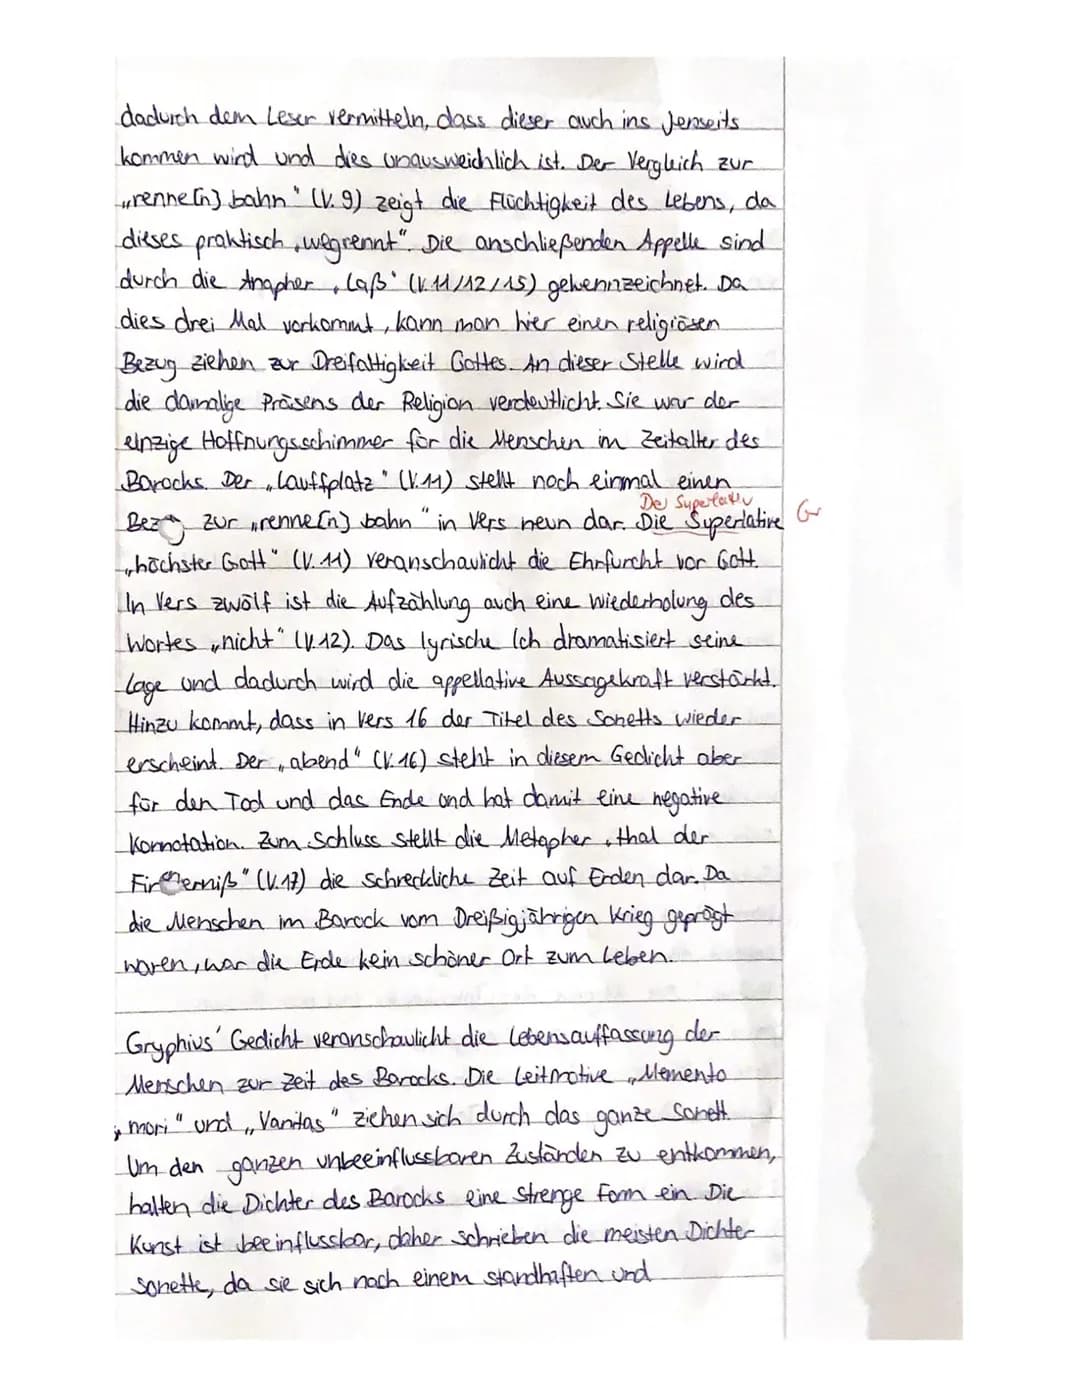 dadurch dem Leser vermitteln, dass dieser auch ins Jenseits
kommen wird und dies unausweichlich ist. Der Vergleich zur
„renne[n] bahn" (V. 9) zeigt die Flüchtigkeit des Lebens, da
dieses praktisch „wegrennt". Die anschließenden Appelle sind
durch die Anapher „laß" (V. 11/12/15) gekennzeichnet. Da
dies drei Mal vorkommt, kann man hier einen religiösen
Bezug ziehen zur Dreifaltigkeit Gottes. An dieser Stelle wird
die damalige Präsens der Religion verdeutlicht. Sie war der
einzige Hoffnungsschimmer für die Menschen im Zeitalter des
Barocks. Der „lauffplatz" (V. 11) stellt noch einmal einen
Der Superlativ
Bezug zur „renne[n] bahn" in Vers neun dar. Die Superlative Gr
„höchster Gott" (V. 11) veranschaulicht die Ehrfurcht vor Gott.
In Vers zwölf ist die Aufzählung auch eine Wiederholung des
Wortes „nicht" (V. 12). Das lyrische Ich dramatisiert seine
Lage und dadurch wird die appellative Aussagekraft verstärkt.
Hinzu kommt, dass in Vers 16 der Titel des Sonetts wieder
erscheint. Der „abend" (V. 16) steht in diesem Gedicht aber
für den Tod und das Ende und hat damit eine negative
Konnotation. Zum Schluss stellt die Metapher „thal der
(V. 17) die schreckliche Zeit auf Erden dar. Da
die Menschen im Barock vom Dreißigjährigen Krieg geprägt
waren, war die Erde kein schöner Ort zum Leben.
Gryphius' Gedicht veranschaulicht die Lebensauffassung der
Menschen zur Zeit des Barocks. Die Leitmotive „Memento
mori" und „Vanitas" ziehen sich durch das ganze Sonett.
Um den ganzen unbeeinflussbaren Zuständen zu entkommen,
halten die Dichter des Barocks eine strenge Form ein. Die
Kunst ist beeinflussbar, daher schrieben die meisten Dichter
Sonette, da sie sich nach einem standhaften und